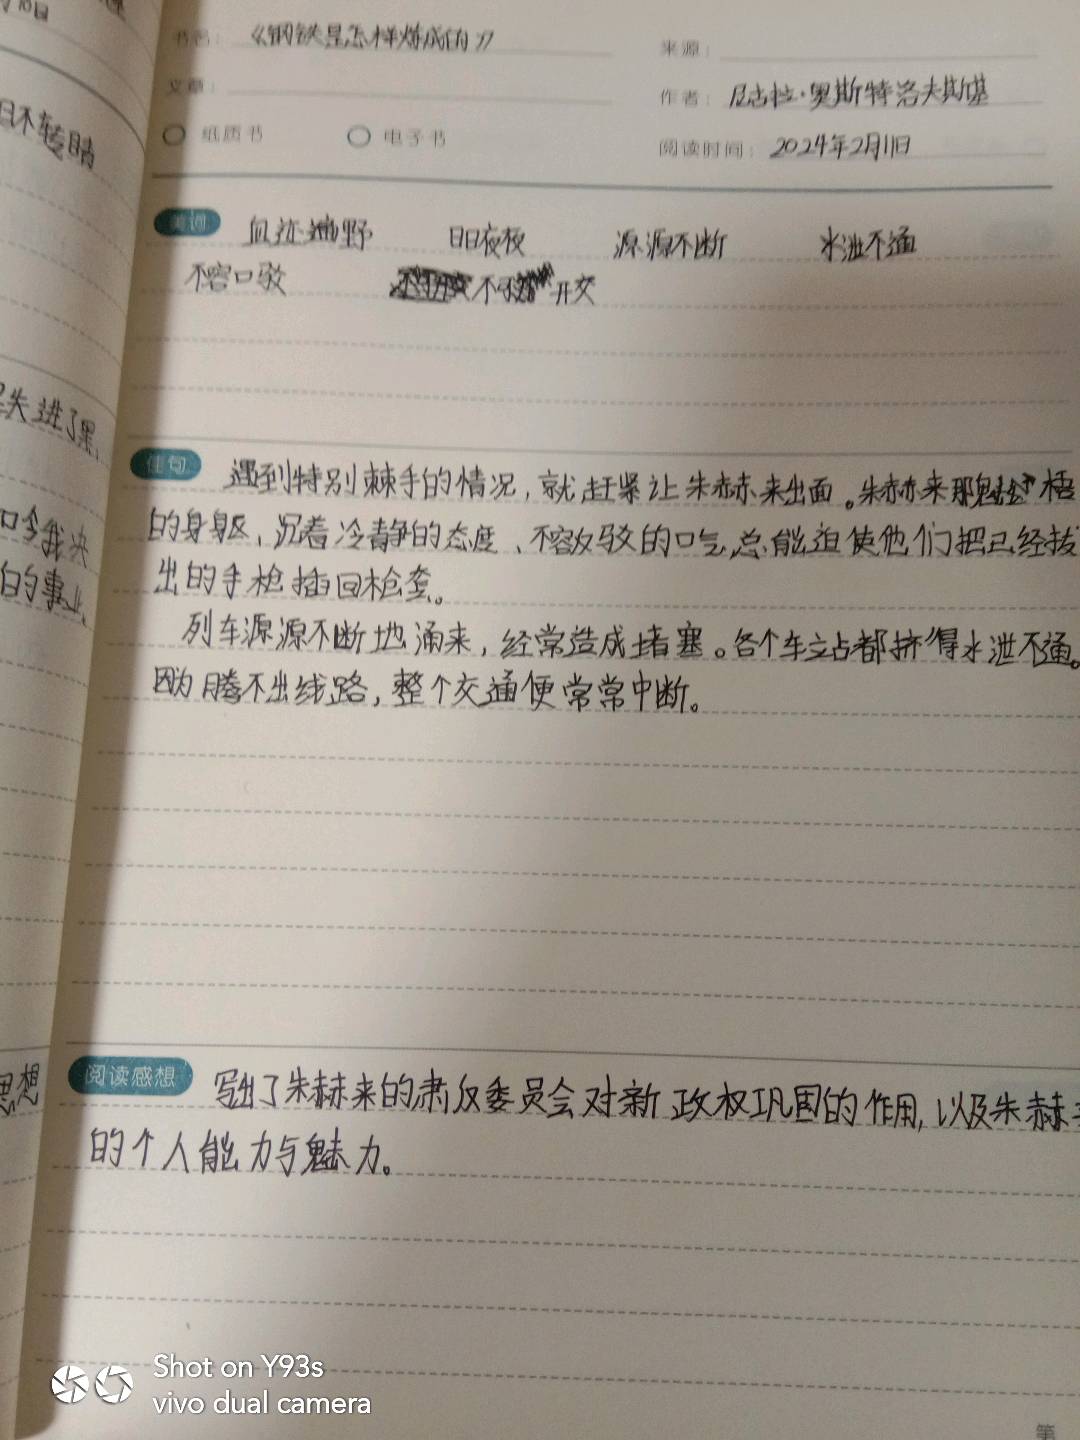 月10日
书名：《钢铁是怎样炼成的》
来源：
文章：
作者：尼古拉·奥斯特洛夫斯基
纸质书 电子书
阅读时间：2024年2月11日
目不转睛
美词 血迹遍野 日日夜夜 源源不断 水泄不通
不容口驳 不可开交
失进了黑
佳句 遇到特别棘手的情况，就赶紧让朱赫来出面。朱赫来那魁梧
的身躯，沉着冷静的态度、不容反驳的口气，总能迫使他们把已经拔
出的手枪插回枪套。
列车源源不断地涌来，经常造成堵塞。各个车站都挤得水泄不通。
因为腾不出线路，整个交通便常常中断。
口令我决
的事业
思想
阅读感想 写出了朱赫来的肃反委员会对新政权巩固的作用，以及朱赫
的个人能力与魅力。
Shot on Y93s
vivo dual camera
第